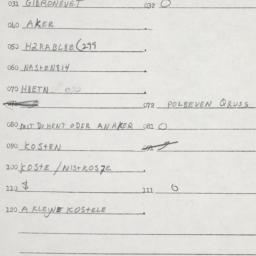 031 GIBRONEVET 032 O
040 AKER
050 HZRABLEE (299
060 NASTENBIH
070 HBETN
072 POLBEVEN QRUSS
080 MIT DEHENT ODER ANAKER 081 O
090 KOSTEN
100 KOSTE / NISTKOSZE
110 111 O
120 A KLEYNE KOSTELE